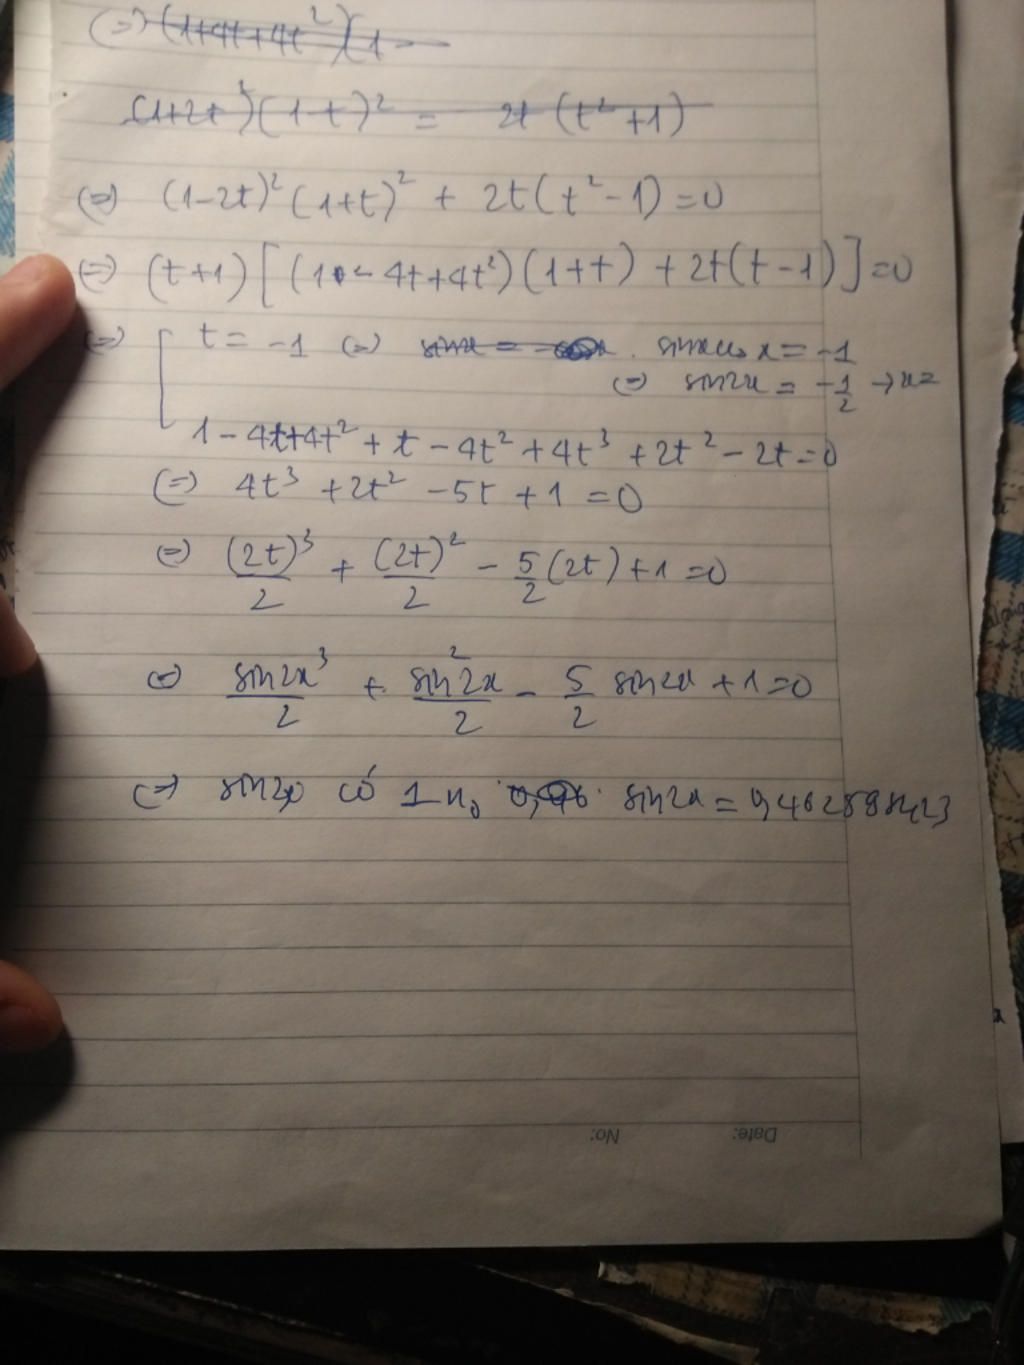 (=) (1+4t+4t²)(1-
(1+2t)(1-t)² = 2t(t²+1)
(=) (1-2t)²(1+t)² + 2t(t²-1)=0
(=) (t+1)[(1-4t+4t²)(1+t)+2t(t-1)]=0
(=) t=-1 (=) sinx = sinxcosx=-1
(=) sin2x = -1/2 →x=
1-4t+4t²+t-4t²+4t³+2t²-2t=0
(=) 4t³+2t²-5t+1=0
(=) (2t)³/2 + (2t)²/2 - 5/2(2t)+1=0
(=) sin2x³/2 + sin²2x/2 - 5/2 sin2x+1=0
(=) sin2x có 1 no sin2x =
No: Date: